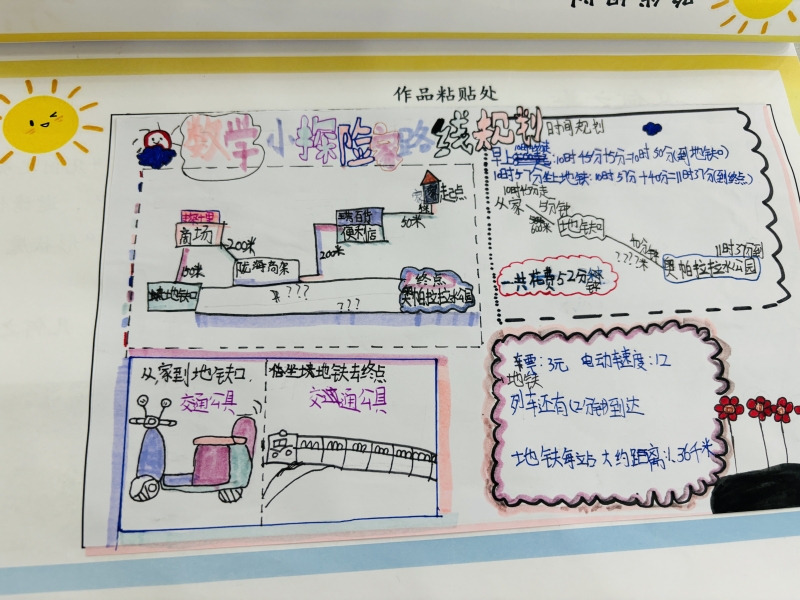 作品粘贴处
数学小探险家路线规划
时间规划
早上 10时45分+5分=10时50分(到地铁口)
10时57分坐上地铁:10时57分+40分=11时37分(到终点)
10时45分走
从家 5分钟
600米
地铁口
40分钟
???米
11时37分到
奥帕拉拉水公园
一共花费52分钟
起点
50米
便利店
200米
商场
200米
陆海商家
150米
地铁口
???
???
终点
奥帕拉拉水公园
从家到地铁口
交通公具
地铁去终点
交通公具
车票:3元 电动车速度:12
地铁
列车还有 到达
地铁每站大约距离1.36千米